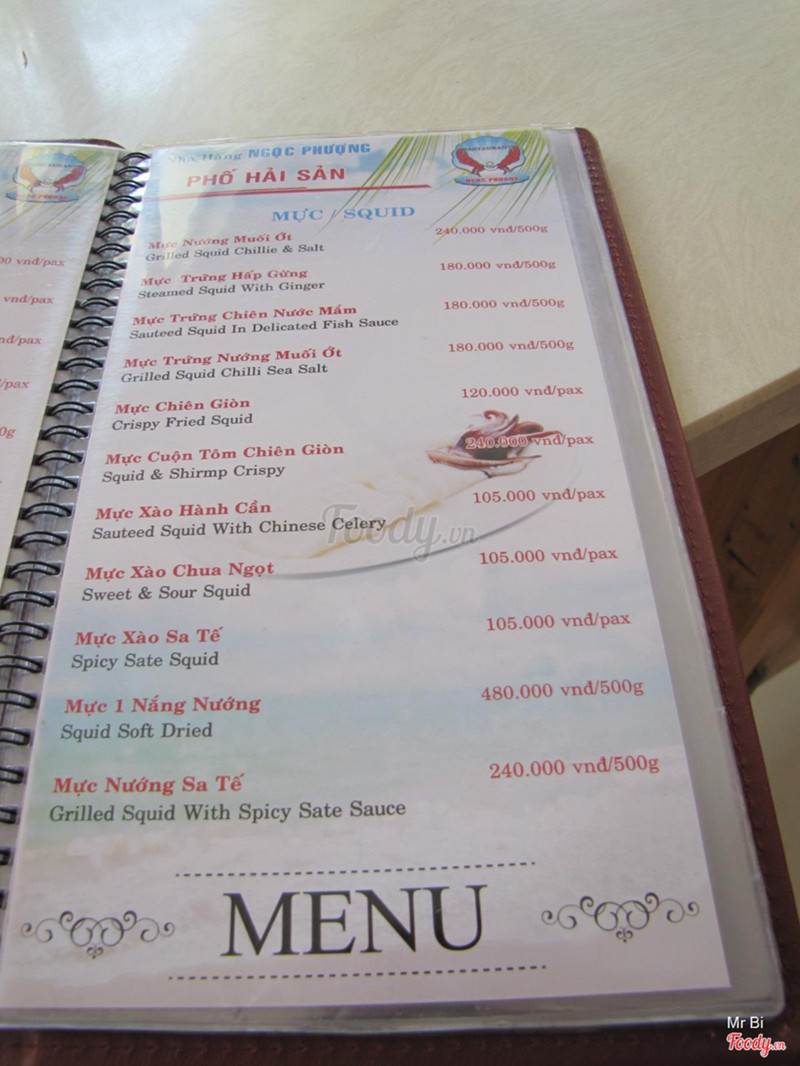 Nhà Hàng NGỌC PHƯỢNG
PHỐ HẢI SẢN
MỰC / SQUID
Mực Nướng Muối Ớt 240.000 vnđ/500g
Grilled Squid Chillie & Salt
Mực Trứng Hấp Gừng 180.000 vnđ/500g
Steamed Squid With Ginger
Mực Trứng Chiên Nước Mắm 180.000 vnđ/500g
Sauteed Squid In Delicated Fish Sauce
Mực Trứng Nướng Muối Ớt 180.000 vnđ/500g
Grilled Squid Chilli Sea Salt
Mực Chiên Giòn 120.000 vnđ/pax
Crispy Fried Squid
Mực Cuộn Tôm Chiên Giòn 240.000 vnđ/pax
Squid & Shirmp Crispy
Mực Xào Hành Cần 105.000 vnđ/pax
Sauteed Squid With Chinese Celery
Foody.vn
Mực Xào Chua Ngọt 105.000 vnđ/pax
Sweet & Sour Squid
Mực Xào Sa Tế 105.000 vnđ/pax
Spicy Sate Squid
Mực 1 Nắng Nướng 480.000 vnđ/500g
Squid Soft Dried
Mực Nướng Sa Tế 240.000 vnđ/500g
Grilled Squid With Spicy Sate Sauce
MENU
Mr Bi
Foody.vn